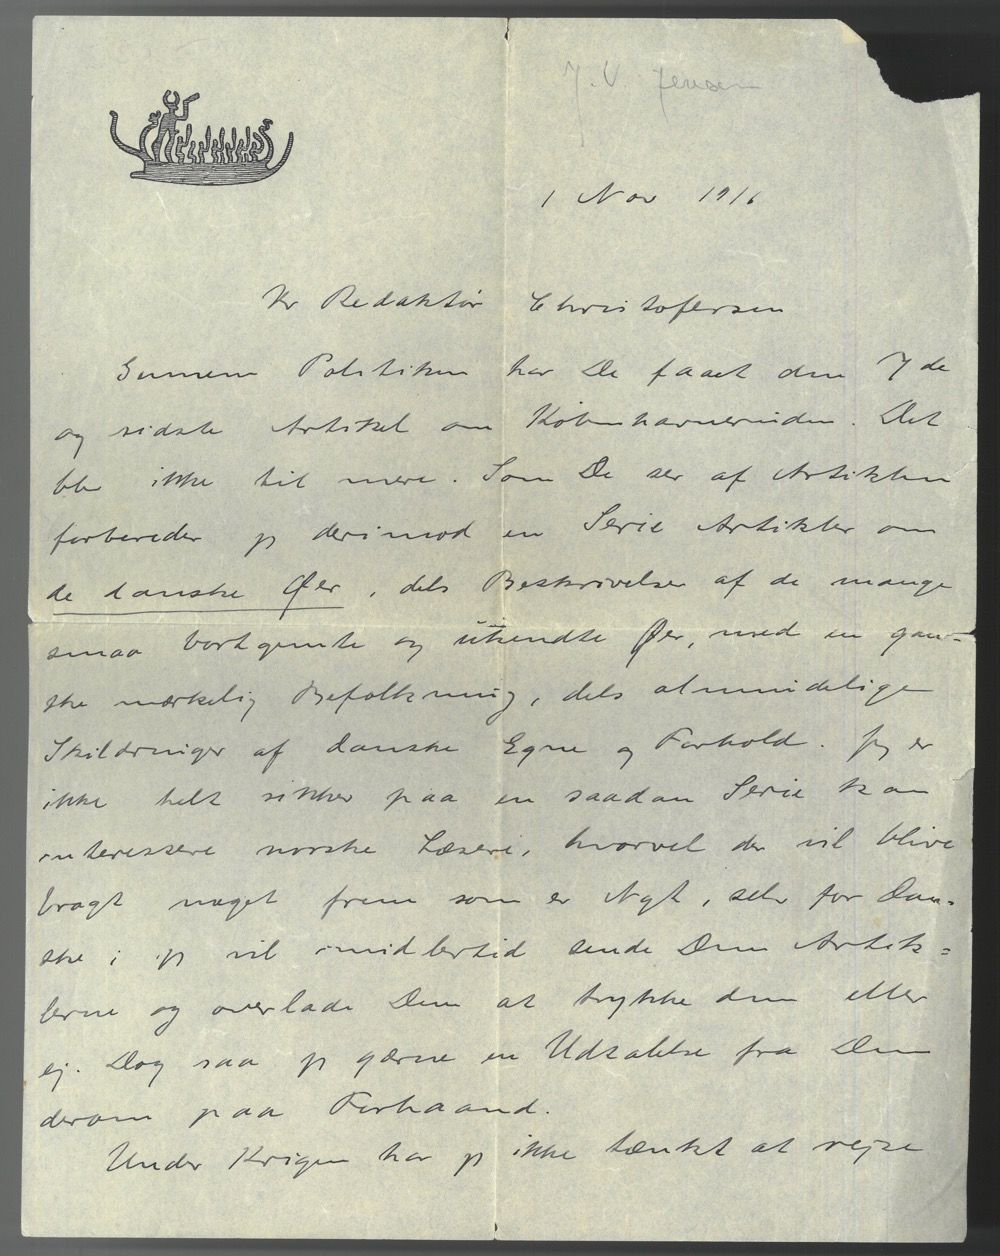 J. V. Jensen
1 Nov 1916
Hr Redaktør Christofersen
Gennem Politiken har De faaet den 7de
og sidste Artikel om Københavnerinden. Det
blev ikke til mere. Som De ser af Artiklen
forbereder jeg derimod en Serie Artikler om
de danske Øer, dels Beskrivelser af de mange
smaa bortgemte og ukendte Øer, med en gan-
ske mærkelig Befolkning, dels almindelige
Skildringer af danske Egne og Forhold. Jeg er
ikke helt sikker paa en saadan Serie kan
interessere norske Læsere, hvorvel der vil blive
bragt noget frem som er Nyt, selv for Dan-
ske; jeg vil imidlertid sende Dem Artik=
lerne og overlade Dem at trykke dem eller
ej. Dog saa jeg gærne en Udtalelse fra Dem
derom paa Forhaand.
Under Krigen har jeg ikke tænkt at rejse